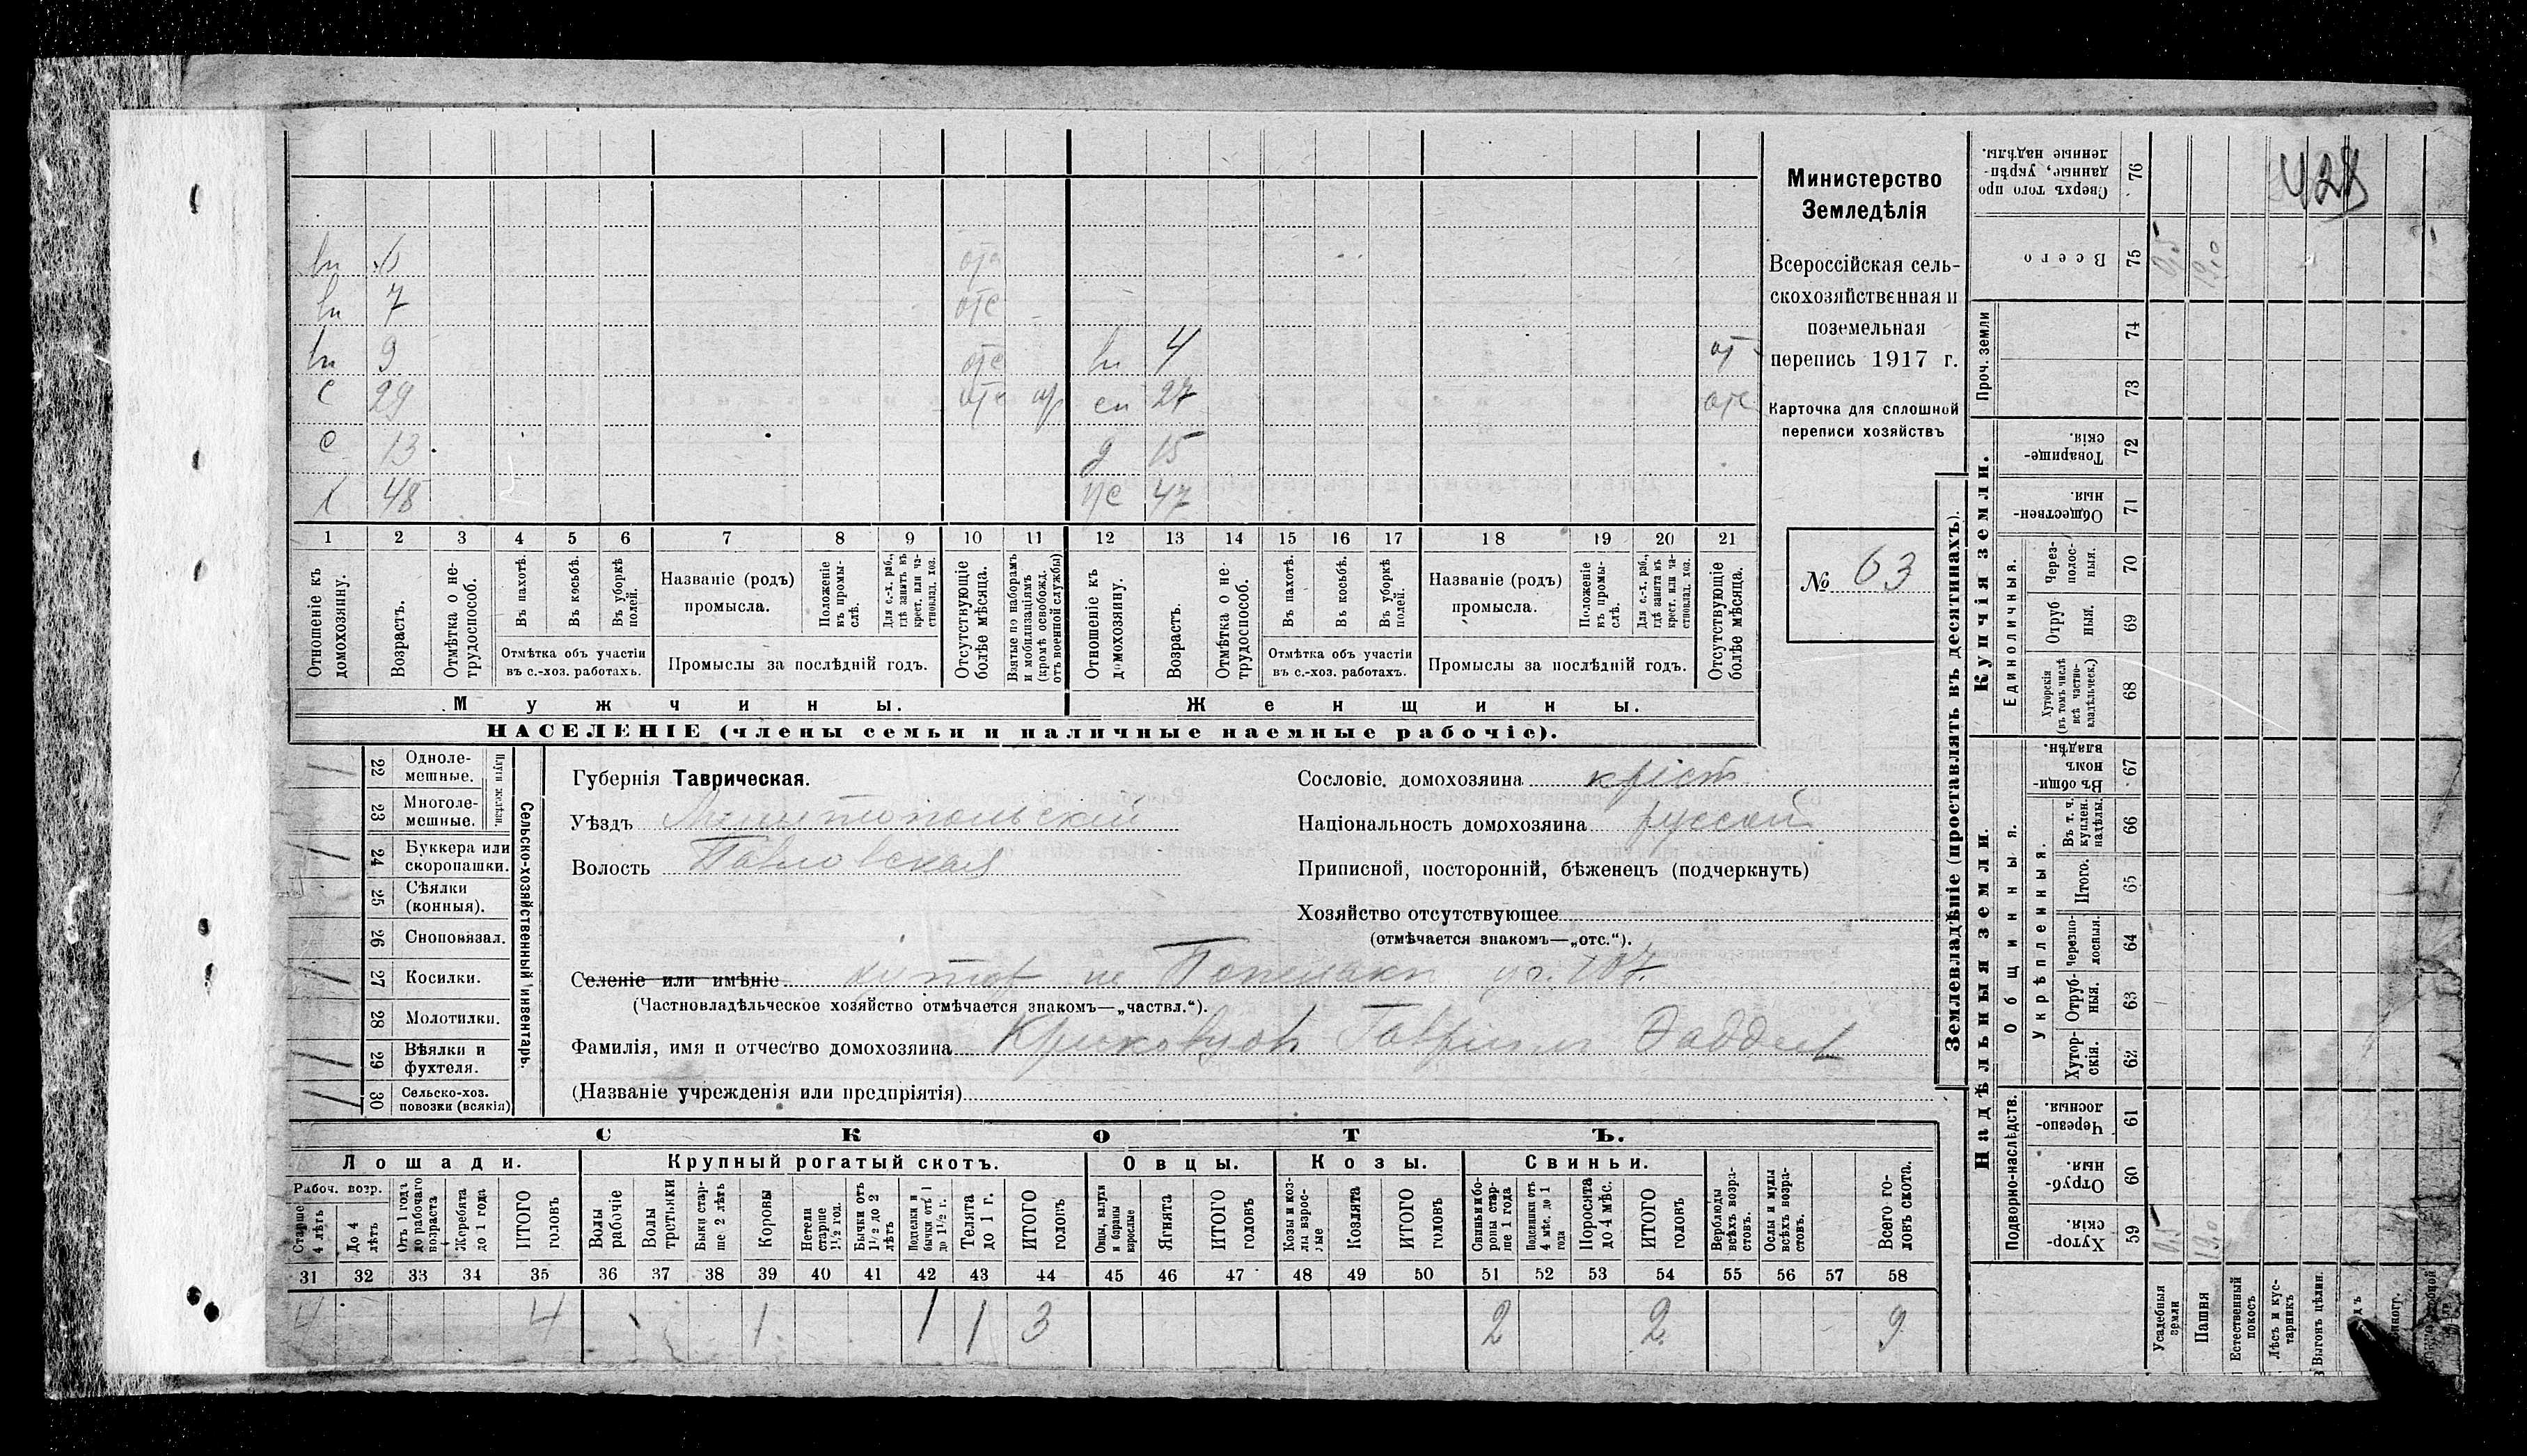 428
Министерство
Земледѣлія
Всероссійская сель-
скохозяйственная и
поземельная
перепись 1917 г.
Карточка для сплошной
переписи хозяйствъ
№ 63
вн 6 отс
вн 7 отс
вн 9 отс вн 4 от
с 29 отс сн 27 отс
с 13 д 15
х 48 же 47
1 2 3 4 5 6 7 8 9 10 11 12 13 14 15 16 17 18 19 20 21
Отношеніе къ домохозяину.
Возрастъ.
Отмѣтка о не-трудоспособ.
Въ пахотѣ.
Въ косьбѣ.
Въ уборкѣ полей.
Отмѣтка объ участіи
въ с.-хоз. работахъ.
Названіе (родъ)
промысла.
Положеніе въ промы-слѣ.
Для с.-х. раб., гдѣ занятъ въ крест. или ча-стновлад. хоз.
Промыслы за послѣдній годъ.
Отсутствующіе болѣе мѣсяца.
Взятые по наборамъ и мобилизаціямъ (кромѣ освобожд. отъ военной службы)
Отношеніе къ домохозяину.
Возрастъ.
Отмѣтка о не-трудоспособ.
Въ пахотѣ.
Въ косьбѣ.
Въ уборкѣ полей.
Отмѣтка объ участіи
въ с.-хоз. работахъ.
Названіе (родъ)
промысла.
Положеніе въ промы-слѣ.
Для с.-х. раб., гдѣ занята въ крест. или ча-стновлад. хоз.
Промыслы за послѣдній годъ.
Отсутствующіе болѣе мѣсяца.
Мужчины. Женщины.
НАСЕЛЕНІЕ (члены семьи и наличные наемные рабочіе).
Сельско-хозяйственный инвентарь.
Плуги желѣзн.
22 Одноле-мешные. /
23 Многоле-мешные.
24 Буккера или скоропашки. /
25 Сѣялки (конныя).
26 Сноповязал.
27 Косилки. /
28 Молотилки.
29 Вѣялки и фухтеля. /
30 Сельско-хоз. повозки (всякія) //
Губернія Таврическая.
Уѣздъ Мелитопольскій
Волость Павловская
Сословіе домохозяина крест
Національность домохозяина русской
Приписной, посторонній, бѣженецъ (подчеркнуть)
Хозяйство отсутствующее
(отмѣчается знакомъ—„отс.“).
Селеніе или имѣніе хутор
(Частновладѣльческое хозяйство отмѣчается знакомъ—„частвл.“).
Фамилія, имя и отчество домохозяина Гавріил Фаддеев
(Названіе учрежденія или предпріятія)
СКОТЪ.
Лошади. Крупный рогатый скотъ. Овцы. Козы. Свиньи.
Рабоч. возр.
Старше 4 лѣтъ
До 4 лѣтъ
Отъ 1 года до рабочаго возраста
Жеребята до 1 года
ИТОГО головъ
Волы рабочіе
Волы третьяки
Быки стар-ше 2 лѣтъ
Коровы
Нетели старше 1½ год.
Бычки отъ 1½ до 2 лѣтъ
Подтелки и бычки отъ 1 до 1½ г.
Телята до 1 г.
ИТОГО головъ
Овцы, валухи и бараны взрослые
Ягнята
ИТОГО головъ
Козы и коз-лы взрос-лые
Козлята
ИТОГО головъ
Свиньи и бо-ровы стар-ше 1 года
Подсвинки отъ 4 мѣс. до 1 года
Поросята до 4 мѣс.
ИТОГО головъ
Верблюды всѣхъ возра-стовъ.
Ослы и мулы всѣхъ возра-стовъ.
Всего го-ловъ скота.
31 32 33 34 35 36 37 38 39 40 41 42 43 44 45 46 47 48 49 50 51 52 53 54 55 56 57 58
4 4 1 1 1 3 2 2 9
Землевладѣніе (проставлять въ десятинахъ).
Купчія земли.
Надѣльныя земли.
Сверхъ того про данные, укрѣп-ленные надѣлы. 76
Всего 75 0,5 19,0
Проч. земли 74 73
Товарище-скія. 72
Обществен-ныя. 71
Единоличныя.
Через-полос-ныя. 70
Отруб ныя. 69
Хуторскія (въ томъ числѣ всѣ частно-владѣльческ.) 68
Общинныя.
Въ общин-номъ владѣн. 67
Укрѣпленныя.
Въ т. ч. куплен. надѣлы. 66
Итого. 65
Черезпо-лосныя. 64
Отруб-ныя. 63
Хутор-скія. 62
Подворно-наслѣдств.
Черезпо-лосныя. 61
Отруб-ныя. 60
Хутор-скія. 59 0,5 19,0
Усадебныя земли
Пашня
Естественный покосъ
Лѣсъ и кус-тарникъ
Выгонъ цѣлин.